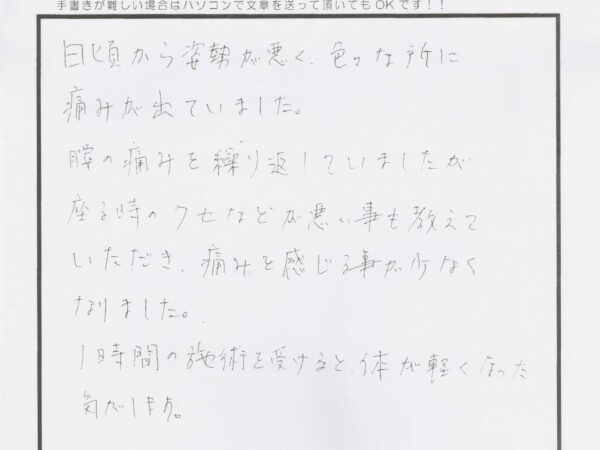 手書きが難しい場合はパソコンで文章を送って頂いてもOKです！！
日頃から姿勢が悪く、色々な所に
痛みが出ていました。
腰の痛みを繰り返していましたが
座る時のクセなどが悪い事も教えて
いただき、痛みを感じる事が少なく
なりました。
1時間の施術を受けると、体が軽くなった
気がします。